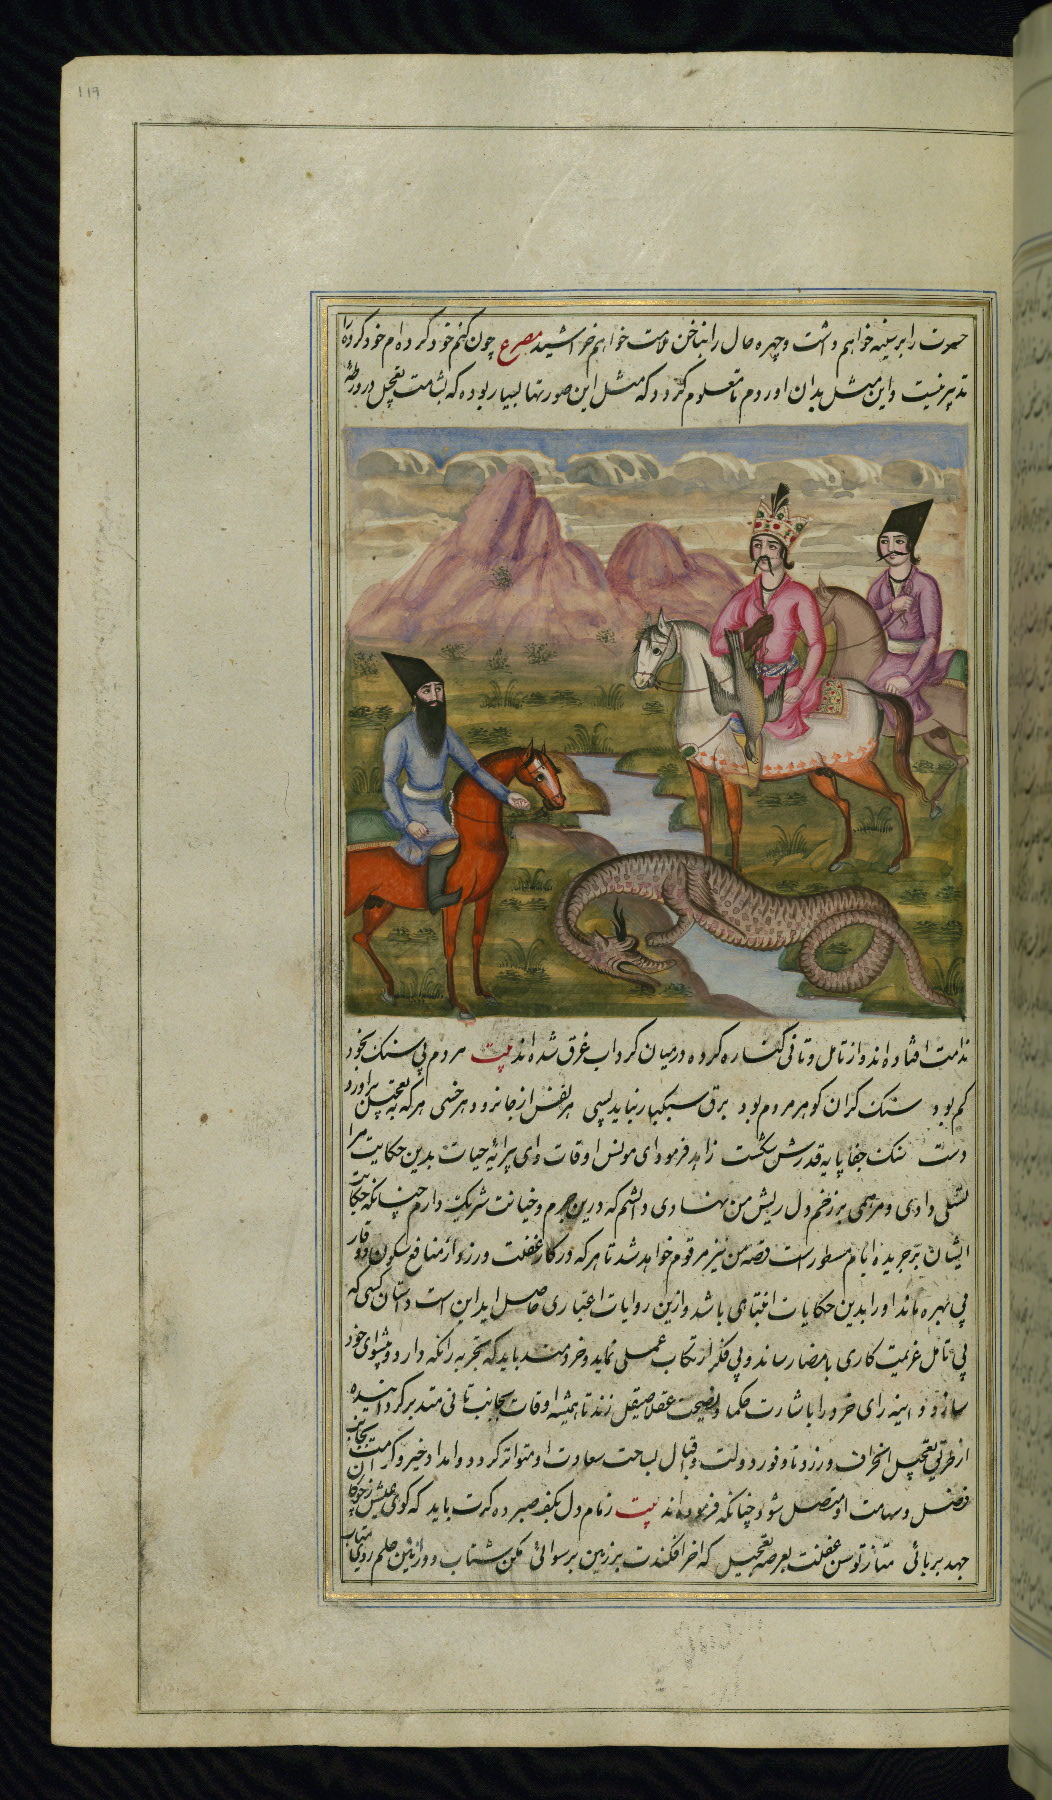 ۱۱۹
حسرت را بر سینه خواهم داشت و چهره حال را بناخن ملامت خواهم خراشید مصرع چون کنم خود کرده ام خود کرده را
تدبیر نیست و این مثل بدان اوردم تا معلوم گردد که مثل این صورتها بسیار بوده که بشامت تعجیل در ورطهٔ
ندامت افتاده اند و از تامل و تانی کناره کرده در میان گرداب غرق شده اند بیت مردم بی سنک بخود
کم بود سنک گران گوهر مردم بود برق سبکبار نپاید بسی هر نفس از جا نرود هر خسی هر که به تعجیل براورد
دست سنک جفا پایه قدرش شکست زاهد فرمود ای مونس اوقات و ای پیرایهٔ حیات بدین حکایت مرا
تسلی دادی و مرهمی بر زخم دل ریش من نهادی دانستم که درین جرم و خیانت شریک دارم چنانکه حکایت
ایشان بر جریده ایام مسطور است قصه من نیز مرقوم خواهد شد تا هر که در کار غفلت ورزد و از منافع سکون و وقار
بی بهره ماند او را بدین حکایات انتباهی باشد و ازین روایات اعتباری حاصل اید این است داستان کسی که
بی تامل عزیمت کاری بامضا رساند و بی فکر ارتکاب عملی نماید و خردمند باید که تجربه را نگه دارد و پیشوای خود
سازد و اینه رای خود را باشارت حکما و نصیحت عقلا صیقل زند تا همیشه اوقات بجانب تانی و تدبر گرداینده
از طریق تعجیل انحراف ورزد تا وفود دولت و اقبال بساحت سعادت او متواتر گردد و امداد خیر و کرامت بجانب ان
فضل و سهامت او متصل شود چنانکه فرموده اند بیت زمام دل بکف صبر ده گرت باید که گوی عیش بچوگان
جهد بربائی متاز توسن غفلت بعرصه تعجیل که اخر افکندت بر زمین برسوائی مکن شتاب و از ائین حلم روی متاب